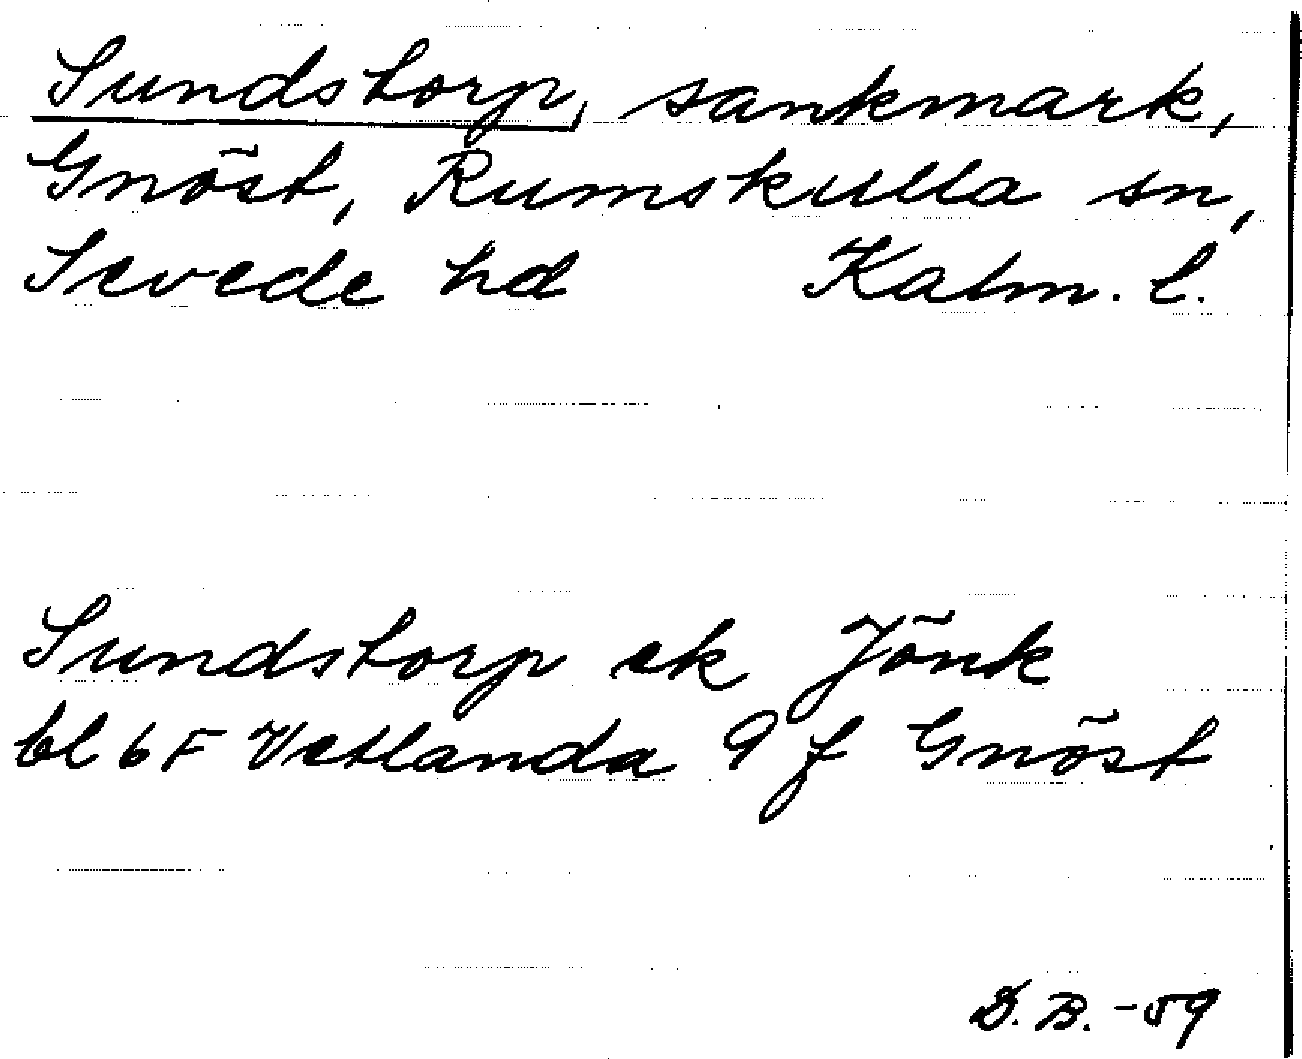 Sundstorp, sankmark,
Gnöst, Rumskulla sn,
Sevede hd Kalm. l.
Sundstorp ek Jönk
bl 6F Vetlanda 9 f Gnöst
D.B. -59